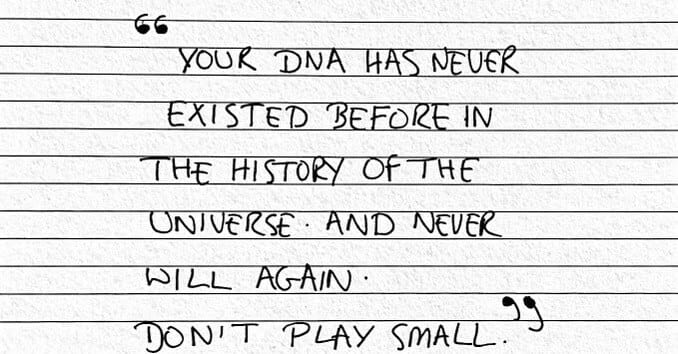 “
YOUR DNA HAS NEVER
EXISTED BEFORE IN
THE HISTORY OF THE
UNIVERSE. AND NEVER
WILL AGAIN.
DON'T PLAY SMALL.”